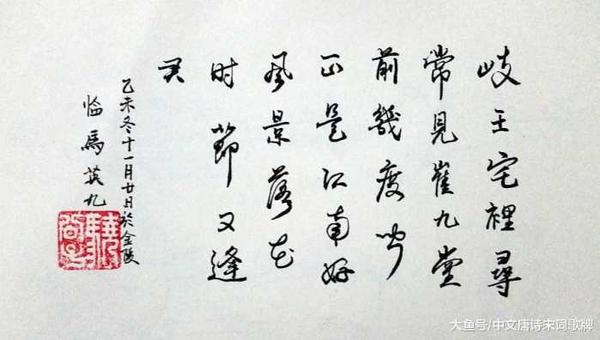 岐王宅裡尋
常見崔九堂
前幾度聞
正是江南好
風景落花
时節又逢
君
乙未冬十一月廿日於金陵
临馬英九
大鱼号/中文唐诗宋词歌牌